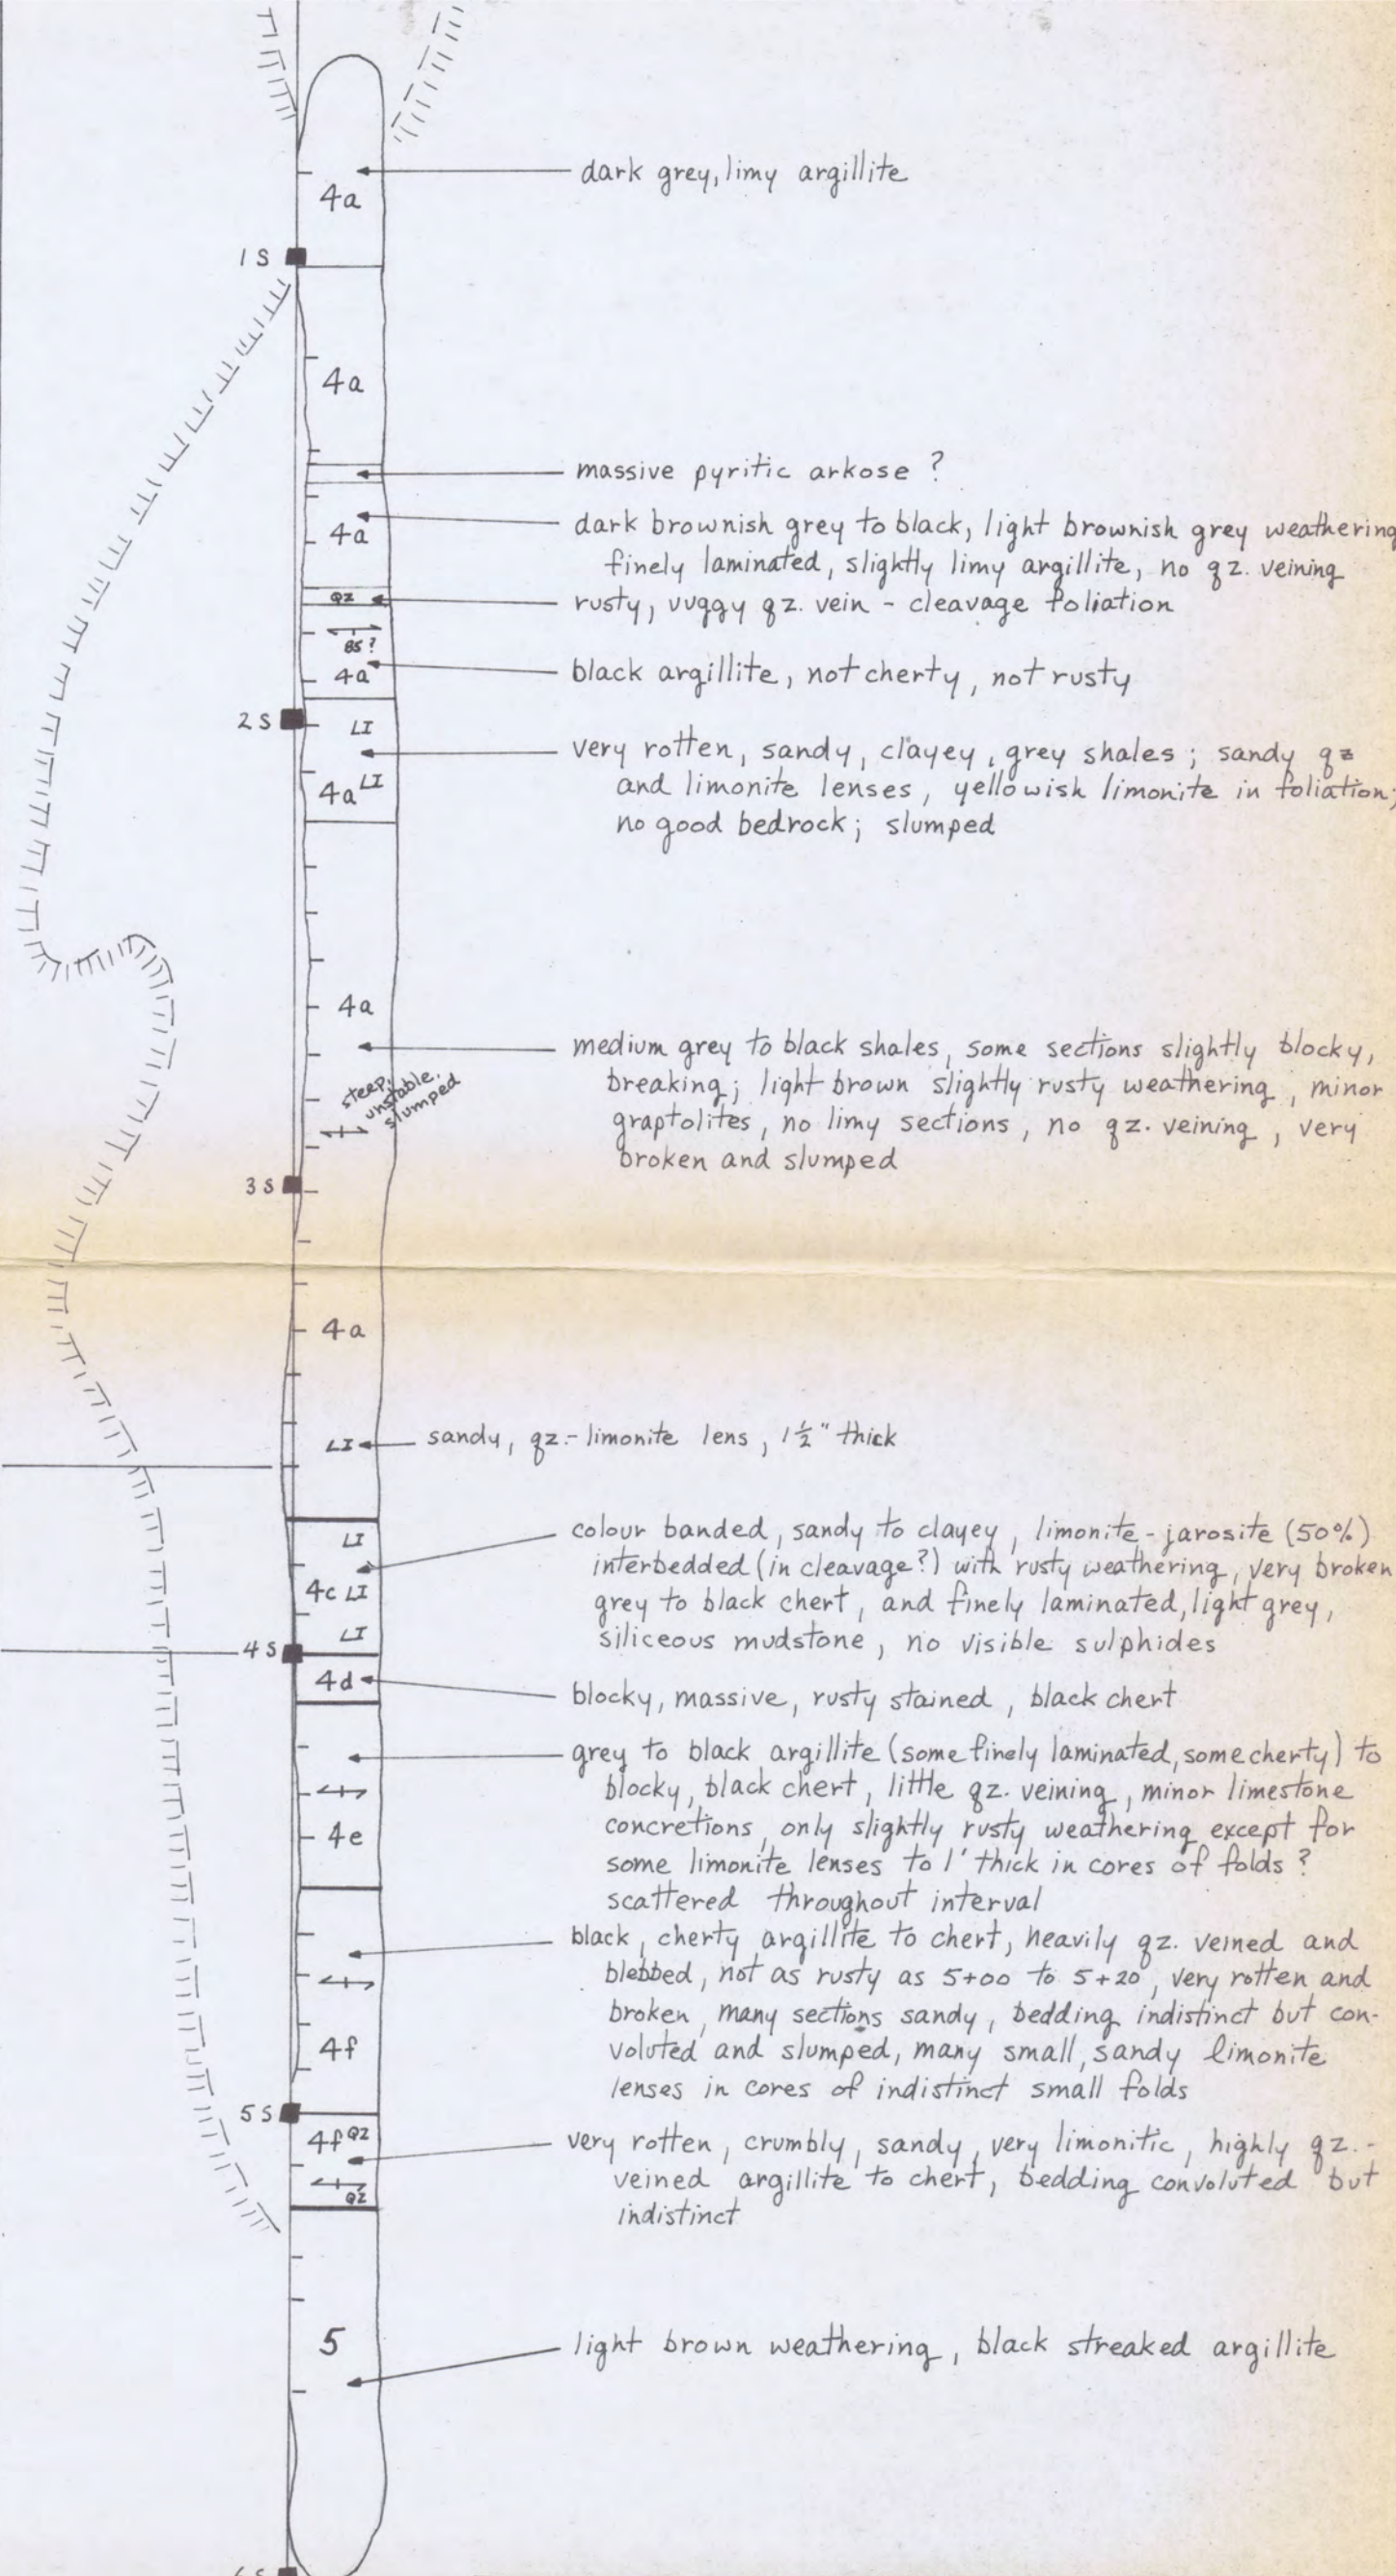 dark grey, limy argillite
4a
1 S
4a
massive pyritic arkose ?
dark brownish grey to black, light brownish grey weathering
4a
finely laminated, slightly limy argillite, no qz. veining
QZ
rusty, vuggy qz. vein - cleavage foliation
BS?
black argillite, not cherty, not rusty
4a
2 S
LI
very rotten, sandy, clayey, grey shales; sandy qz
4a LI
and limonite lenses, yellowish limonite in foliation;
no good bedrock; slumped
4a
medium grey to black shales, some sections slightly blocky,
breaking; light brown slightly rusty weathering, minor
graptolites, no limy sections, no qz. veining, very
broken and slumped
steep,
unstable,
slumped
3 S
4a
LI
sandy, qz.- limonite lens, 1½" thick
LI
colour banded, sandy to clayey, limonite - jarosite (50%)
interbedded (in cleavage?) with rusty weathering, very broken
4c LI
grey to black chert, and finely laminated, light grey,
LI
siliceous mudstone, no visible sulphides
4 S
4d
blocky, massive, rusty stained, black chert
grey to black argillite (some finely laminated, some cherty) to
blocky, black chert, little qz. veining, minor limestone
4e
concretions, only slightly rusty weathering except for
some limonite lenses to 1' thick in cores of folds?
scattered throughout interval
black, cherty argillite to chert, heavily qz. veined and
blebbed, not as rusty as 5+00 to 5+20, very rotten and
broken, many sections sandy, bedding indistinct but con-
4f
voluted and slumped, many small, sandy limonite
lenses in cores of indistinct small folds
5 S
4f QZ
very rotten, crumbly, sandy, very limonitic, highly qz.-
veined argillite to chert, bedding convoluted but
QZ
indistinct
5
light brown weathering, black streaked argillite
6 S